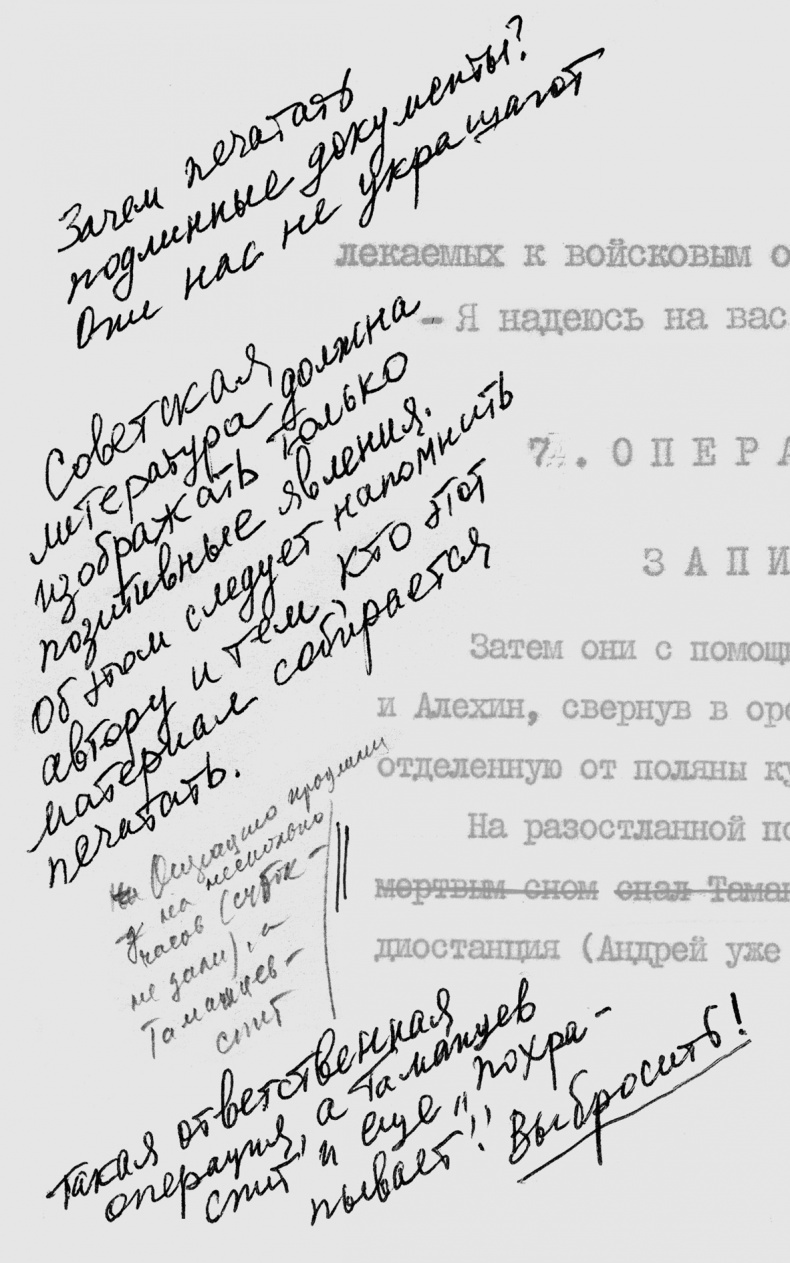 Зачем печатать
подлинные документы?
Они нас не украшают
лекаемых к войсковым о
– Я надеюсь на вас
Советская
литература должна
изображать только
позитивные явления.
Об этом следует напомнить
автору и тем, кто этот
материал собирается
печатать.
7. О П Е Р А
З А П И
Затем они с помощ
и Алехин, свернув в ор
отделенную от поляны ку
На разостланной по
мертвым сном спал Таман
диостанция (Андрей уже
Операцию продлили
на несколько
часов (суток
не дали), а
Таманцев –
спит
Такая ответственная
операция, а Таманцев
спит и еще „похра-
пывает"! Выбросить!